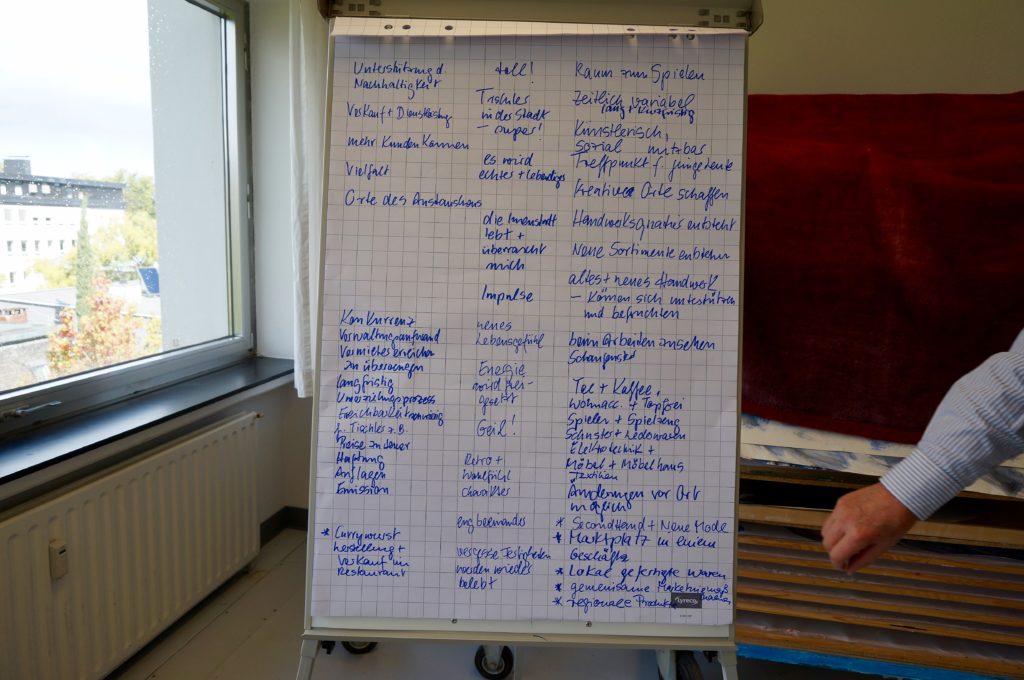 Unterstützung d.
Nachhaltigkeit
Verkauf + Dienstleistung
mehr Kunden können
Vielfalt
Orte des Austauschens
Konkurrenz
Verwaltungsaufwand
Vermieter erreichen
zu überzeugen
langfristig
Umnutzungsprozess
Erreichbarkeit
f. Tischler z.B.
Preise zu teuer
Haftung
Auflagen
Emission
* Currywurst
herstellung +
Verkauf im
Restaurant
toll!
Tischler
in der Stadt
– super!
es wird
echter + lebendiger
die Innenstadt
lebt +
überrascht
mich
Impulse
neues
Lebensgefühl
Energie
wird frei-
gesetzt
Geil!
Retro +
Wohlfühl
charakter
eng beieinander
vergessene Tätigkeiten
werden wieder
belebt
Raum zum Spielen
Zeitlich variabel
lang + kurzfristig
Künstlerisch,
Sozial nutzbar
Treffpunkt f. junge Leute
Kreative Orte schaffen
Handwerksquartier entsteht
Neue Sortimente entstehen
altes + neues Handwerk
– können sich unterstützen
und befruchten
beim Arbeiten zusehen
Schaupunkt
Tee + Kaffee,
Wohnacc. + Töpferei
Spielen + Spielzeug
Schuster + Lederwaren
Elektrotechnik +
Möbel + Möbelhaus
Textilien
Änderungen vor Ort
möglich
* SecondHand + Neue Mode
* Marktplatz in einem
Geschäft
* Lokal gefertigte waren
* gemeinsame
* regionale Produkte
lyreco